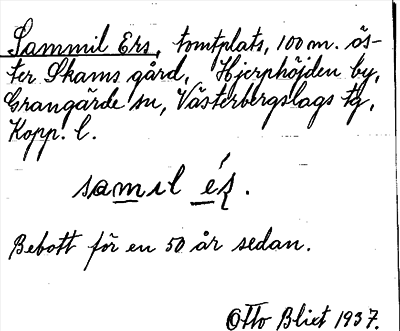 Sammil Ers, tomtplats, 100 m. ös-
ter Skams gård, Hjerphöjden by,
Grangärde sn, Västerbergslags tg,
Kopp. l.
Bebott för en 50 år sedan.
Otto Blixt 1937.